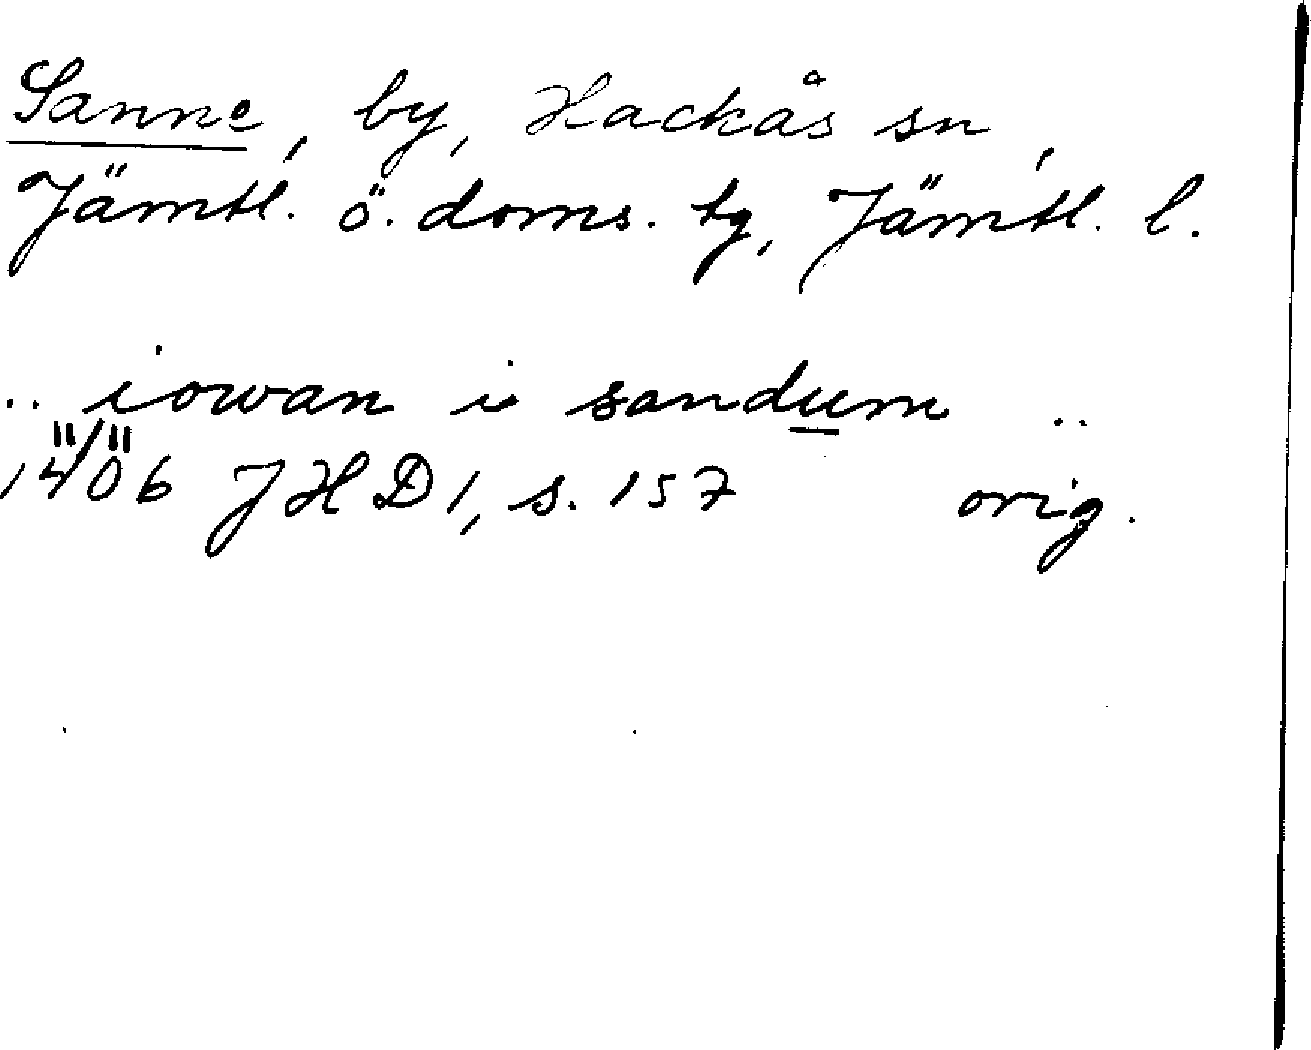 Sanne, by, Hackås sn,
Jämtl. ö. doms. tg, Jämtl. l.
.. iowan i sandum ..
11/11
1406 JHD 1, s. 157 orig.